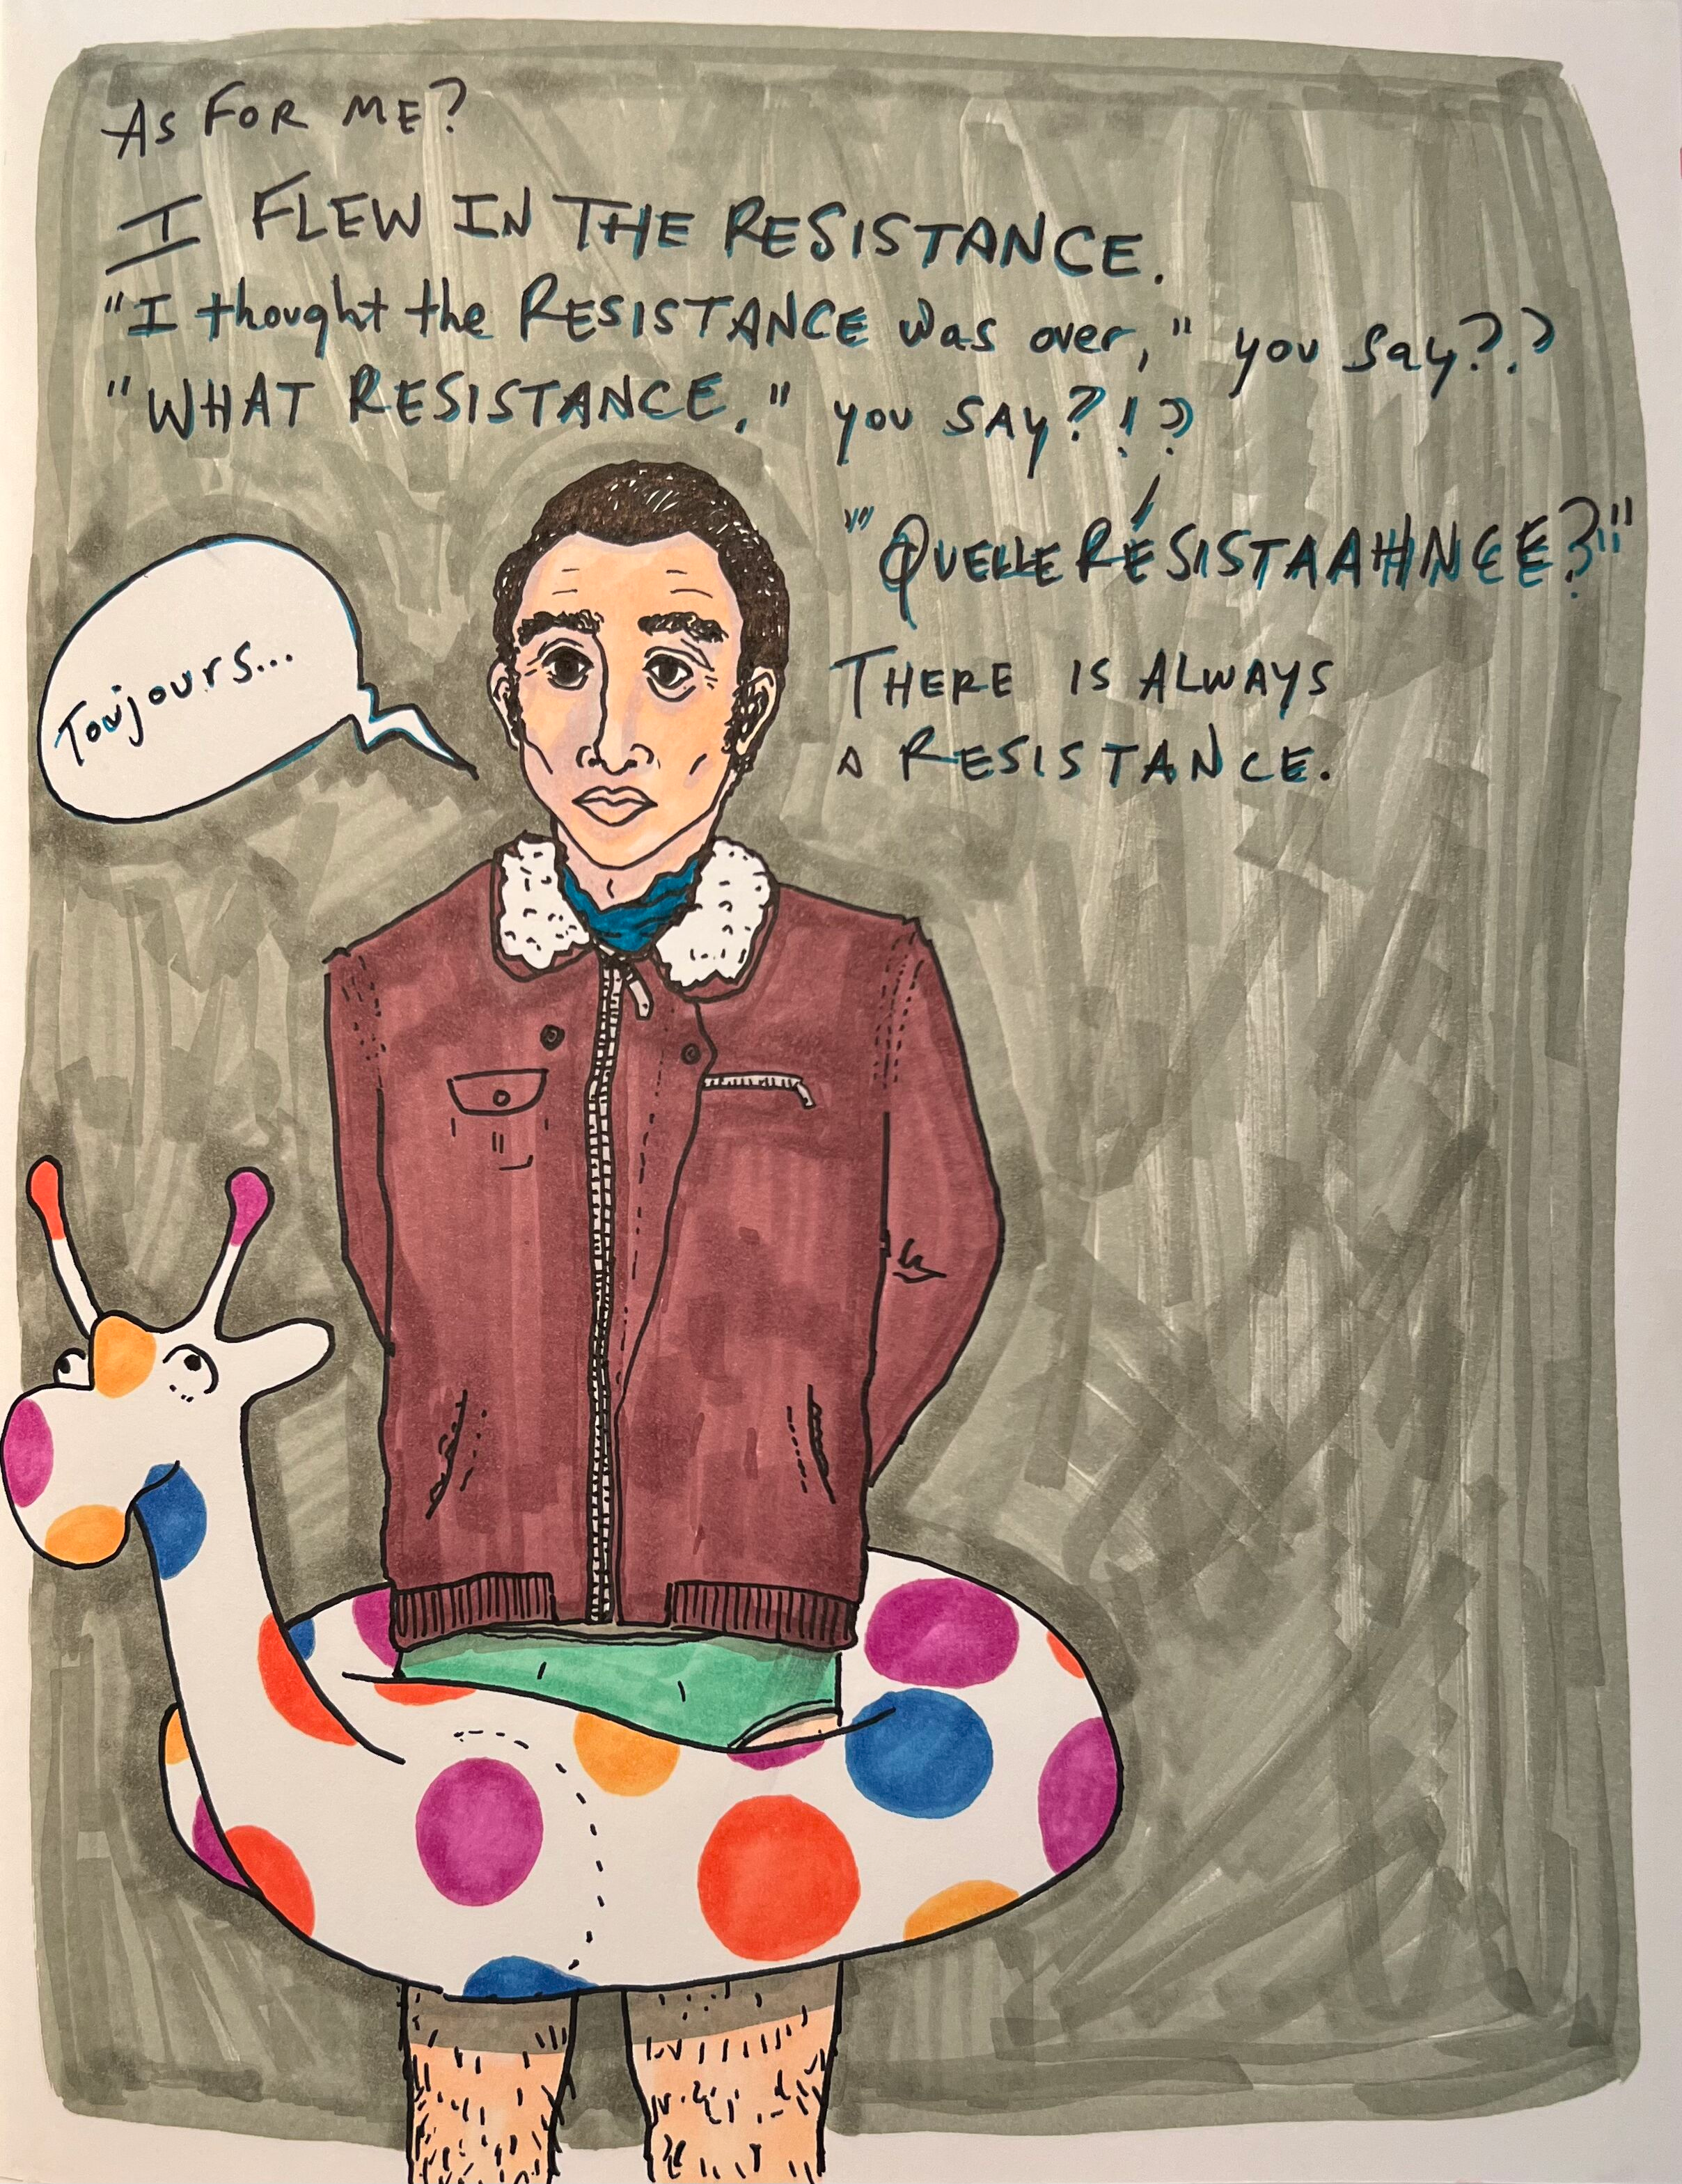 AS FOR ME?
I FLEW IN THE RESISTANCE.
"I thought the RESISTANCE was over," you say??
"WHAT RESISTANCE," you SAY?!?
"QUELLE RÉSISTAAHHNCE?"
THERE IS ALWAYS
A RESISTANCE.
Toujours...